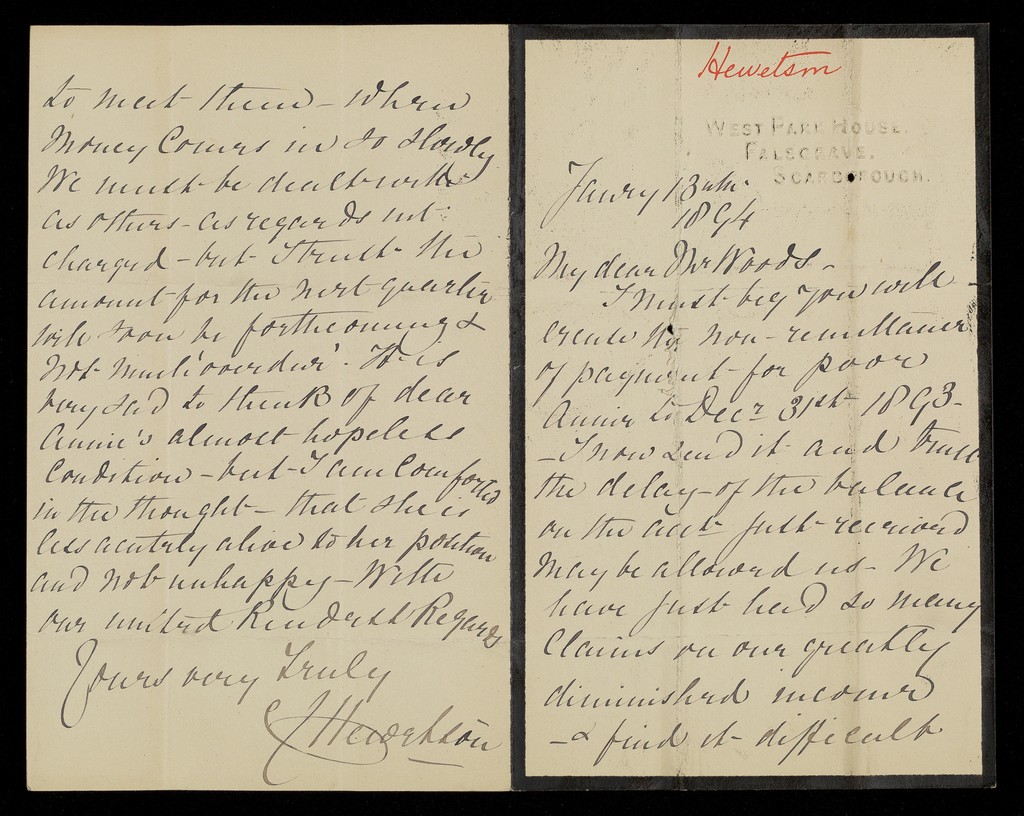 Hewetson
WEST PARK HOUSE.
FALSGRAVE.
SCARBOROUGH.
Janry 13th
1894
My dear Mr Woods -
I must beg you will
excuse the non-remittance
of payment for poor
Annie to Decr 31st 1893 -
- I now send it and trust
the delay - of the balance
on the acct just received
may be allowed us - We
have just had so many
claims on our greatly
diminished income
- & find it difficult
to meet them - when
money comes in so slowly
We must be dealt with
as others - as regards int
charged - but I trust the
amount for the next quarter
will soon be forthcoming &
not much 'overdue'. It is
very sad to think of dear
Annie's almost hopeless
Condition - but I am comforted
in the thought - that she is
less acutely alive to her position
and not unhappy - With
our united Kindest Regards
Yours very truly
Hewetson